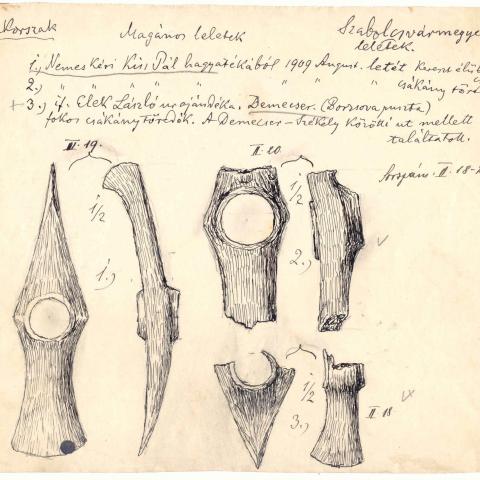 Korszak
Magános leletek
Szabolcsvármegye
leletek.
1.) Nemes Kéri Kiss Pál hagyatékából 1909 August. letét
2.) " " " " " " csákány
+ 3.) if. Elek László úr ajándéka. Demecser. (Borzsova puszta)
fokos csákánytöredék. A Demecser–Székely közötti ut mellett
találtatott.
II. 19.
II. 20.
Sorszám. II. 18-
1/2
1/2
1.)
2.)
1/2
3.)
II. 18